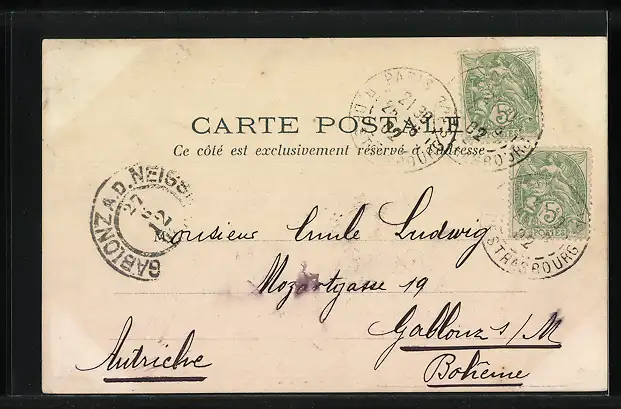 CARTE POSTALE
Ce côté est exclusivement réservé à l'adresse
PARIS
STRASBOURG
5
POSTES
5
STRASBOURG
GABLONZ A.D. NEISSE
27
Monsieur Emile Ludwig
Mozartgasse 19
Gablonz s/M
Bohême
Autriche